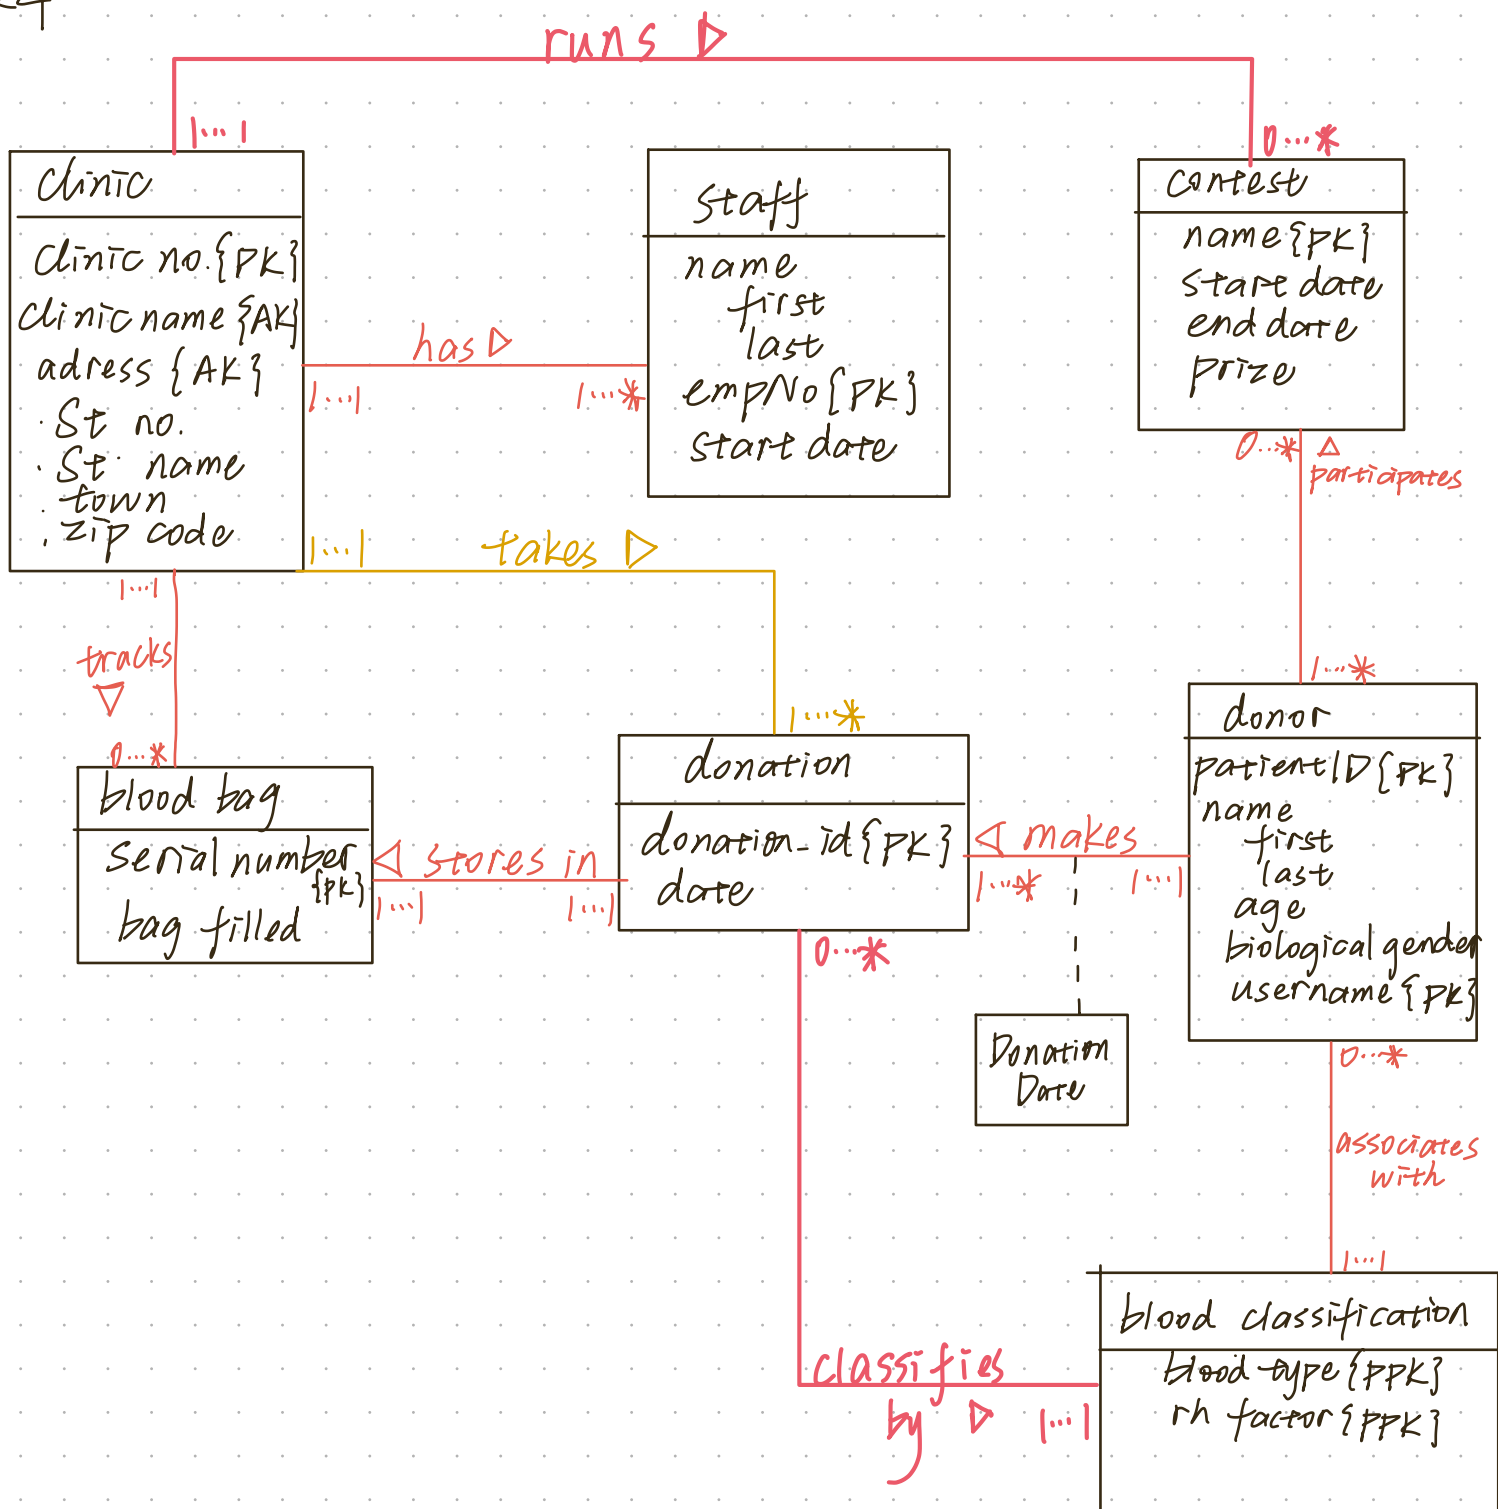 runs
1...1
0...*
clinic
clinic no.{PK}
clinic name {AK}
adress {AK}
. St no.
. St. name
. town
. zip code
staff
name
first
last
empNo {PK}
start date
contest
name {PK}
start date
end date
prize
has
1...1
1...*
0...*
participates
1...*
1...1
takes
1...*
1...1
tracks
0...*
blood bag
serial number
{PK}
bag filled
stores in
1...1
1...1
donation
donation_id {PK}
date
makes
1...*
1...1
donor
patientID {PK}
name
first
last
age
biological gender
username {PK}
0...*
Donation
Date
0...*
associates
with
1...1
classifies
by
1...1
blood classification
blood type {PPK}
rh factor {PPK}